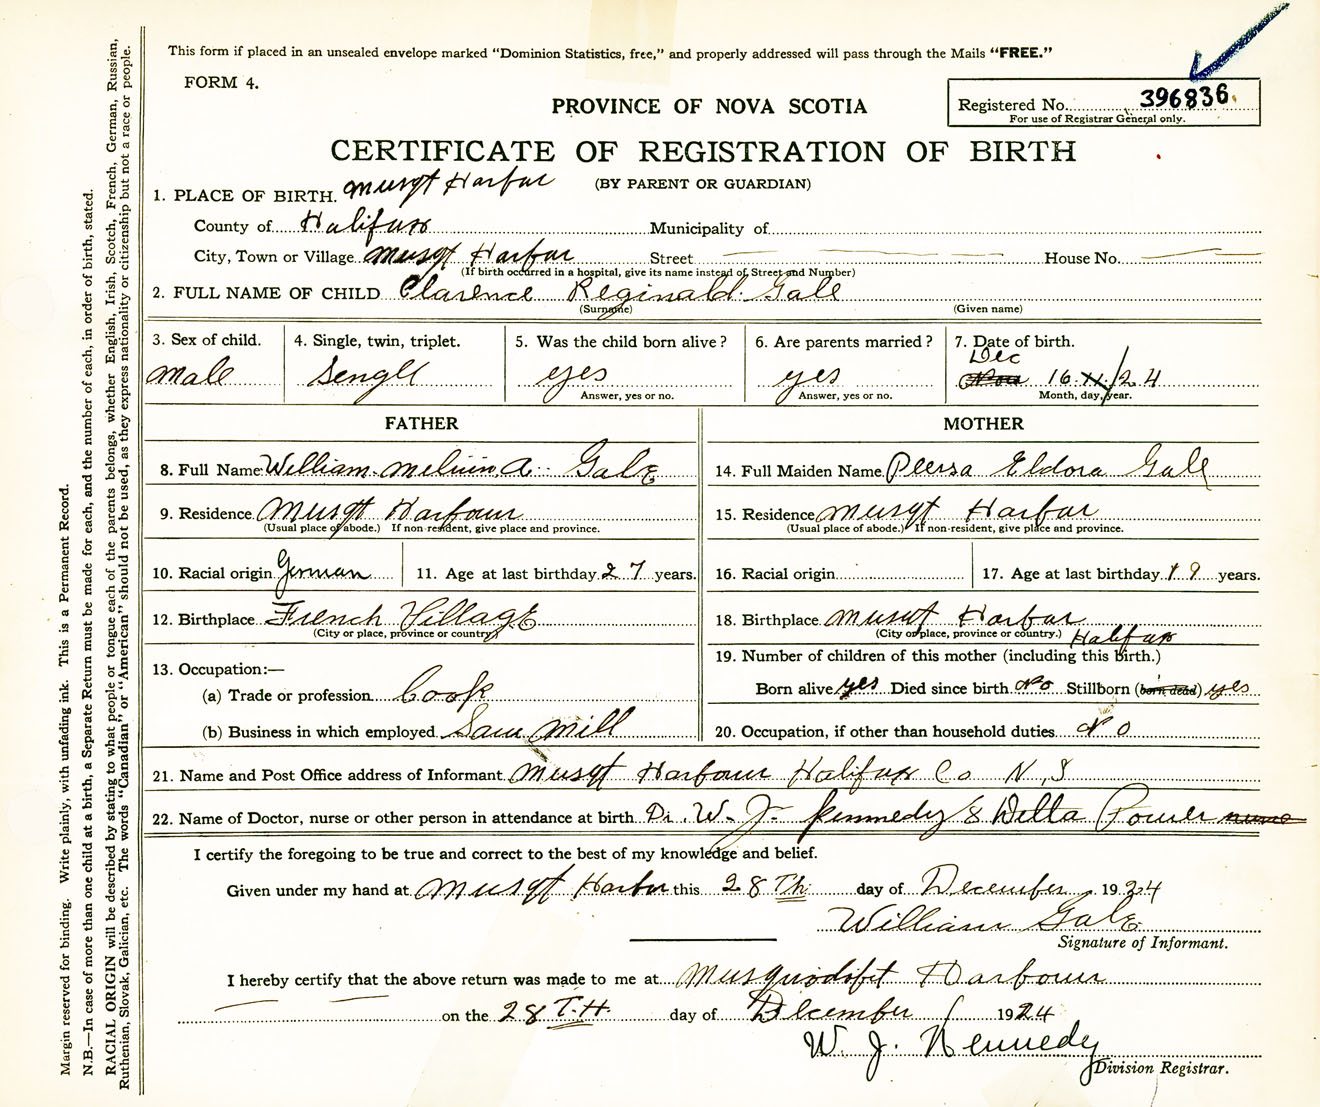 This form if placed in an unsealed envelope marked "Dominion Statistics, free," and properly addressed will pass through the Mails "FREE."
FORM 4.
PROVINCE OF NOVA SCOTIA
Registered No. 396836.
For use of Registrar General only.
CERTIFICATE OF REGISTRATION OF BIRTH
(BY PARENT OR GUARDIAN)
1. PLACE OF BIRTH. Musqt Harbar
County of Halifax Municipality of
City, Town or Village Musqt Harbar Street House No.
(If birth occurred in a hospital, give its name instead of Street and Number)
2. FULL NAME OF CHILD Clarence Reginald. Gale
(Surname) (Given name)
3. Sex of child. 4. Single, twin, triplet. 5. Was the child born alive? 6. Are parents married? 7. Date of birth.
Dec
Male Sengle yes yes Nov 16 11/24
Answer, yes or no. Answer, yes or no. Month, day, year.
FATHER MOTHER
8. Full Name William. Melvin. A. Gale
14. Full Maiden Name Eldora Gale
9. Residence Musqt Harbour
(Usual place of abode.) If non-resident, give place and province.
15. Residence Musqt Harbar
(Usual place of abode.) If non-resident, give place and province.
10. Racial origin German 11. Age at last birthday 27 years.
16. Racial origin 17. Age at last birthday 19 years.
12. Birthplace French Village
(City or place, province or country)
18. Birthplace Musqt Harbar
(City or place, province or country.) Halifax
13. Occupation:—
19. Number of children of this mother (including this birth.)
(a) Trade or profession Cook
Born alive yes Died since birth No Stillborn (born dead) yes
(b) Business in which employed Saw Mill
20. Occupation, if other than household duties No
21. Name and Post Office address of Informant Musqt Harbour Halifax Co N,S
22. Name of Doctor, nurse or other person in attendance at birth Dr. W. J. Kennedy & Della Power nurse
I certify the foregoing to be true and correct to the best of my knowledge and belief.
Given under my hand at Musqt Harbor this 28 Th day of December 1924
William Gale
Signature of Informant.
I hereby certify that the above return was made to me at Musquodobit Harbour
on the 28 T.H. day of December 1924
W. J. Kennedy
Division Registrar.
Margin reserved for binding. Write plainly, with unfading ink. This is a Permanent Record.
N.B.—In case of more than one child at a birth, a Separate Return must be made for each, and the number of each, in order of birth, stated.
RACIAL ORIGIN will be described by stating to what people or tongue each of the parents belongs, whether English, Irish, Scotch, French, German, Russian,
Ruthenian, Slovak, Galician, etc. The words "Canadian" or "American" should not be used, as they express nationality or citizenship but not a race or people.